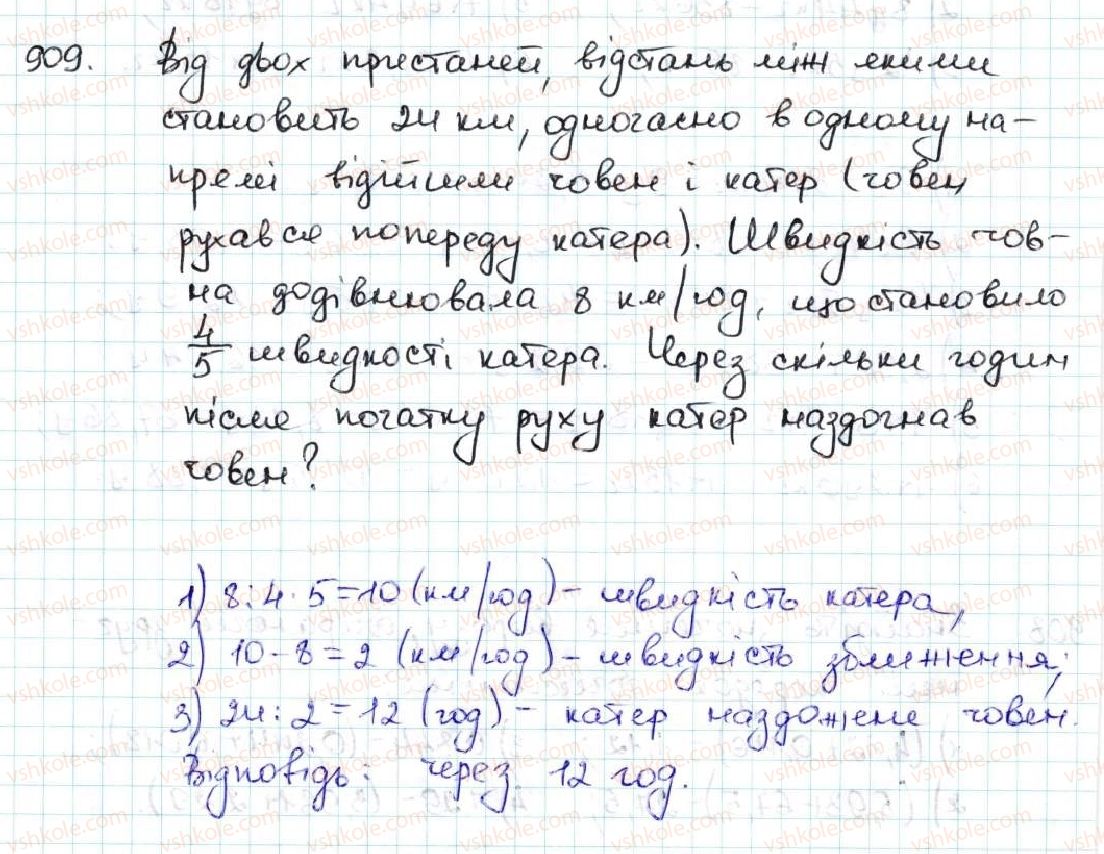 909. Від двох пристаней, відстань між якими
становить 24 км, одночасно в одному на-
прямі відійшли човен і катер (човен
рухався попереду катера). Швидкість чов-
на дорівнювала 8 км/год, що становило
4/5 швидкості катера. Через скільки годин
після початку руху катер наздогнав
човен?
1) 8:4·5=10 (км/год) – швидкість катера,
2) 10-8=2 (км/год) – швидкість зближення;
3) 24:2=12 (год) – катер наздожене човен.
Відповідь: через 12 год.